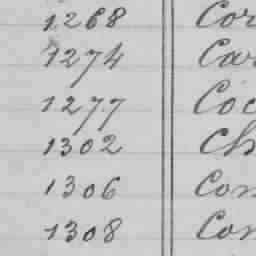 1268 Cor
1274 Car
1277 Coc
1302 Ch
1306 Com
1308 Con